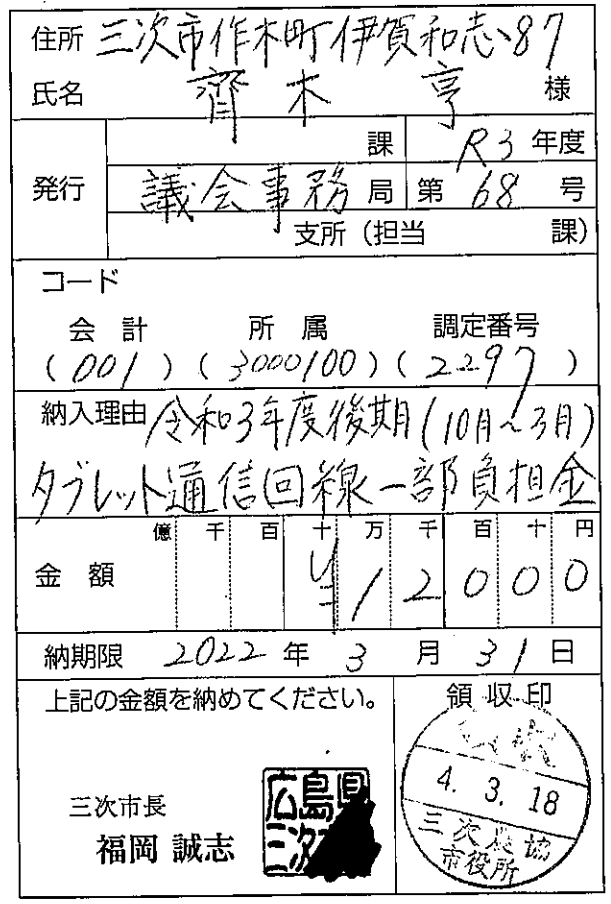 住所 三次市作木町伊賀和志87
氏名 齊木 亨 様
発行 課 R3 年度
議会事務局 第 68 号
支所(担当 課)
コード
会計 所属 調定番号
(001) (3000100) (2297)
納入理由 令和3年度後期(10月~3月)
タブレット通信回線一部負担金
億 千 百 十 万 千 百 十 円
金額 ¥12000
納期限 2022年3月31日
上記の金額を納めてください。
領収印
4.3.18
三次農協
市役所
三次市長
福岡 誠志
広島県
三次